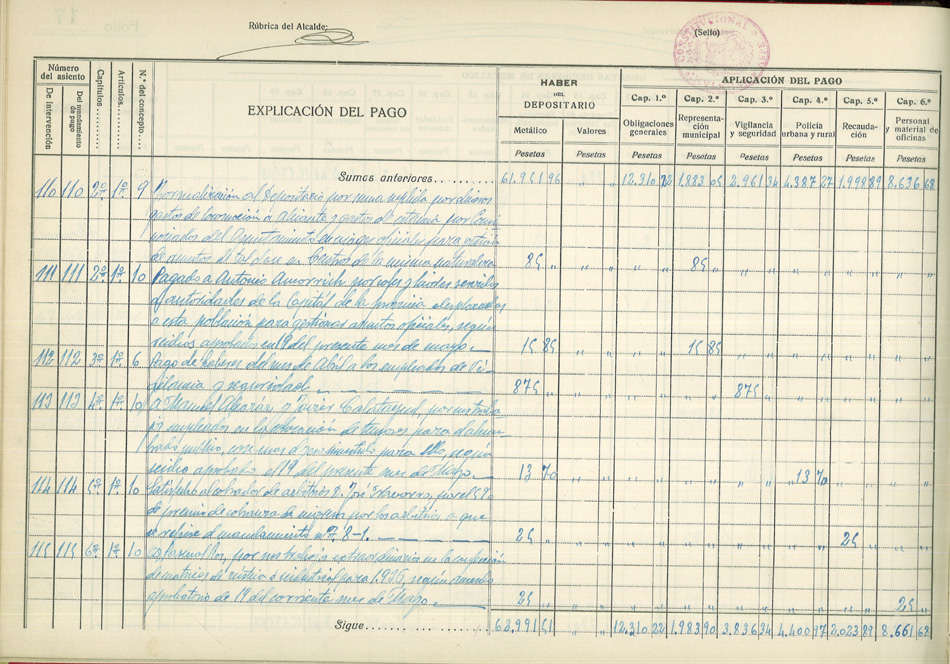 Rúbrica del Alcalde:
CONSTITUCIONAL
(Sello)
Número del asiento
De intervención
Del mandamiento de pago
Capítulos
Artículos
N.º del concepto
EXPLICACIÓN DEL PAGO
HABER DEL DEPOSITARIO
Metálico Valores
Pesetas Pesetas
APLICACIÓN DEL PAGO
Cap. 1.º Cap. 2.º Cap. 3.º Cap. 4.º Cap. 5.º Cap. 6.º
Obligaciones generales Representación municipal Vigilancia y seguridad Policía urbana y rural Recaudación Personal y material de oficinas
Pesetas Pesetas Pesetas Pesetas Pesetas Pesetas
Sumas anteriores 61.951 96 " " 12.310 22 1.883 05 2.961 34 4.387 27 1.998 89 8.636 68
110 110 2º 1º 9 Formalización al Depositario por suma suplida por diversos
gastos de locomoción a Alicante y gastos de estancia por
del Ayuntamiento en viajes oficiales para
de asuntos de tal clase en Centros de la misma naturaleza 85 " 85 "
111 111 2º 1º 10 Pagado a Antonio por cafes y licores servidos
a autoridades de la Capital de la provincia desplazadas
a esta población para gestionar asuntos oficiales, según
recibo aprobado en 19 del presente mes de mayo 15 85 15 85
112 112 3º 1º 6 Pago de haberes del mes de Abril a los empleados de Vi-
gilancia y seguridad 875 " 875 "
113 113 4º 1º 10 A Manuel y Javier Calatayud, por
empleados en la colocación de para
público, para ello, según
recibo aprobado el 19 del presente mes de Mayo 13 70 13 70
114 114 5º 1º 10 Satisfecho al cobrador de arbitrios D. José Navarro, por el 5 %
de premio de cobranza de ingresos por los arbitrios a que
se refiere el mandamiento nº 7. 8-1. 25 " 25 "
115 115 6º 1º 10 por sus trabajos extraordinarios en la confección
de matrices de rústica é industrial para 1.956, según
aprobatorio de 19 del corriente mes de Mayo 25 " 25 "
Sigue 62.991 51 12.310 22 1.983 90 3.836 34 4.400 97 2.023 89 8.661 68